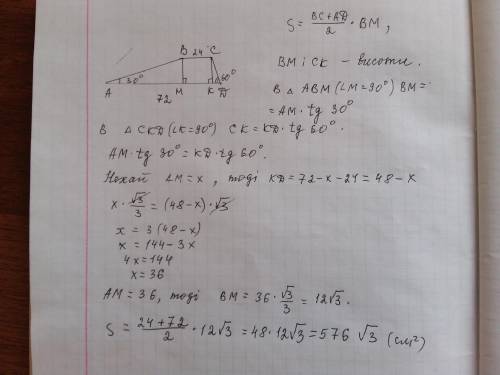 S = (BC+AD)/2 · BM,
B 24 C
30° 60°
A M K D
72
BM і CK – висоти.
В △ ABM (∠M=90°) BM =
= AM · tg 30°
В △ CKD (∠K=90°) CK = KD · tg 60°.
AM · tg 30° = KD · tg 60°.
Нехай AM = x, тоді KD = 72 - x - 24 = 48 - x
x · √3/3 = (48 - x) · √3
x = 3(48 - x)
x = 144 - 3x
4x = 144
x = 36
AM = 36, тоді BM = 36 · √3/3 = 12√3.
S = (24+72)/2 · 12√3 = 48 · 12√3 = 576 √3 (см²)